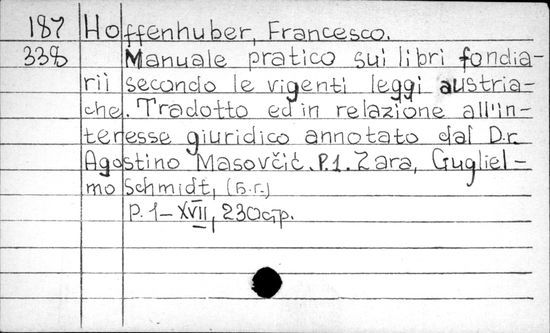 187 Hoffenhuber, Francesco.
338 Manuale pratico sui libri fondia-
rii secondo le vigenti leggi austria-
che. Tradotto ed in relazione all'in-
teresse giuridico annotato dal Dr.
Agostino Masovčić. P.1. Zara, Gugliel-
mo Schmidt, (б.г.)
P. 1-XVII, 230 стр.